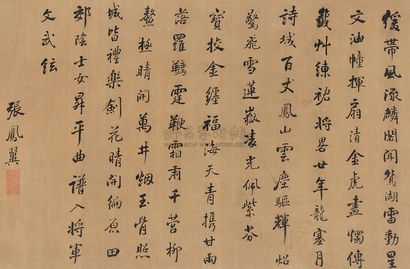 緩帶風流麟閣開鴛湖雷動星
文油幢揮扇清金虎盡燭傳
艸練裙將略廿年龍塞月
詩城百丈鳳山雲塵驅輝焰
驚飛雪蓮嶽凌光佩紫芬
寶校金纏福海天青攜甘雨
落羅驄霆鞭霜肅千營柳
鰲極晴開萬井烟玉骨照
城皆禮樂劍花晴開綺魚田
郊陰士女昇平曲譜入將軍
文武絃
張鳳翼